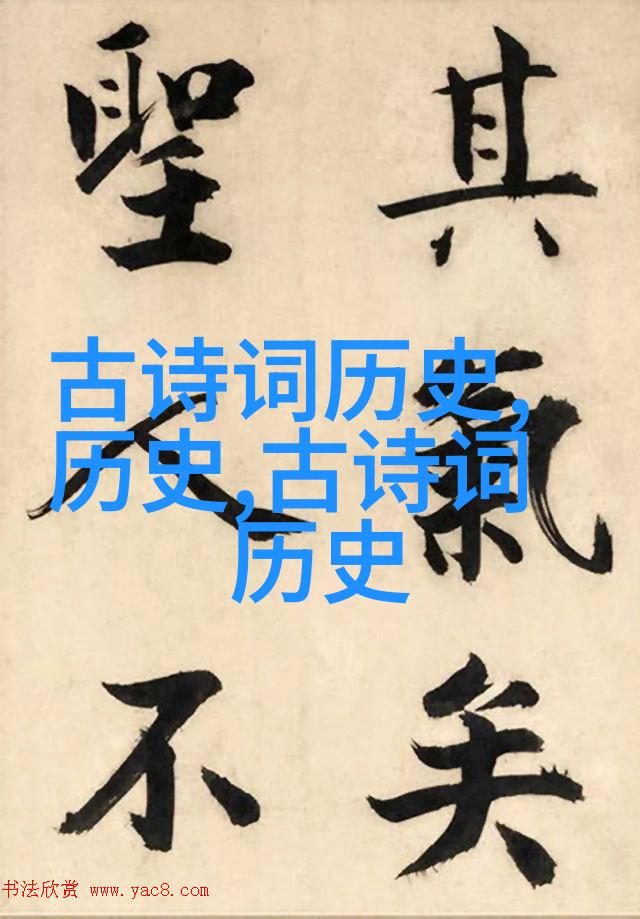 其氣矣
聖人不
古诗词历史,
历史,古诗词
历史
书法欣赏 www.yac8.com